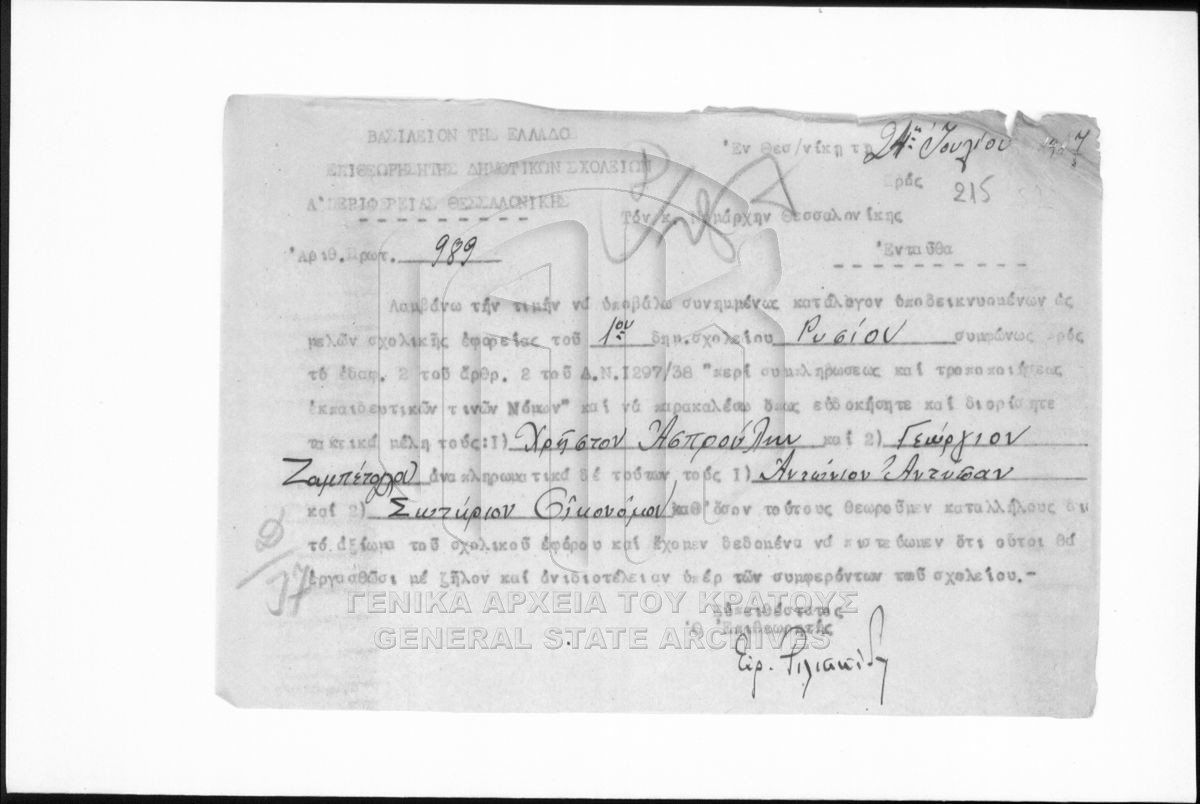 ΒΑΣΙΛΕΙΟΝ ΤΗΣ ΕΛΛΑΔΟΣ
ΕΠΙΘΕΩΡΗΤΗΣ ΔΗΜΟΤΙΚΩΝ ΣΧΟΛΕΙΩΝ
Α' ΠΕΡΙΦΕΡΕΙΑΣ ΘΕΣΣΑΛΟΝΙΚΗΣ
Ἀριθ.Πρωτ. 989
Ἐν Θεσ/νίκη τη 24η Ἰουλίου
Πρός
215
Τόν κ. Νομάρχην Θεσσαλονίκης
Ἐνταῦθα
Λαμβάνω τήν τιμήν νά ὑποβάλω συνημμένως κατάλογον ὑποδεικνυομένων ὡς
μελῶν σχολικῆς ἐφορείας τοῦ 1ου δημ.σχολείου Ρυσίου συμφώνως πρός
τό ἐδαφ. 2 τοῦ ἄρθρ. 2 τοῦ Α.Ν.1297/38 "περί συμπληρώσεως καί τροποποιήσεως
ἐκπαιδευτικῶν τινῶν Νόμων" καί νά παρακαλέσω ὅπως εὐδοκήσητε καί διορίσητε
τακτικά μέλη τούς:1) Χρῆστον Ἀσπρούλην καί 2) Γεώργιον
Ζαμπέτογλου ἀναπληρωματικά δέ τούτων τούς 1) Ἀντώνιον Ἀντύπαν
καί 2) Σωτήριον Οἰκονόμου καθ'ὅσον τούτους θεωροῦμεν καταλλήλους διά
τό ἀξίωμα τοῦ σχολικοῦ ἐφόρου καί ἔχομεν δεδομένα νά πιστεύωμεν ὅτι οὗτοι θά
ἐργασθῶσι μέ ζῆλον καί ἀνιδιοτέλειαν ὑπέρ τῶν συμφερόντων τοῦ σχολείου.-
Εὐπειθέστατος
Ὁ Ἐπιθεωρητής
ΓΕΝΙΚΑ ΑΡΧΕΙΑ ΤΟΥ ΚΡΑΤΟΥΣ
GENERAL STATE ARCHIVES